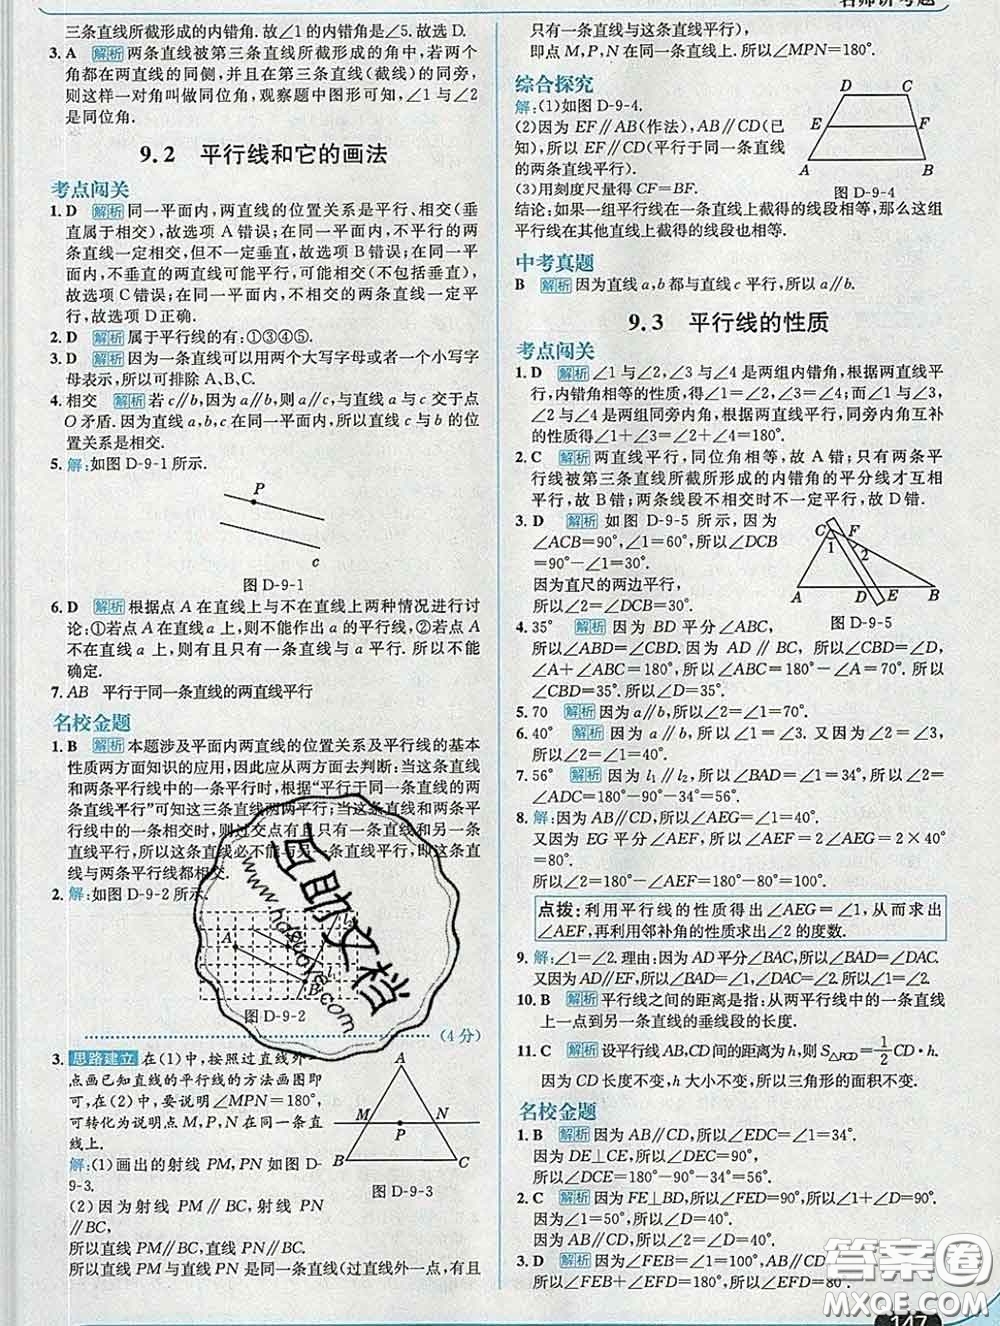 名师讲考题
三条直线所截形成的内错角.故∠1的内错角是∠5.故选D.
3. A 解析 两条直线被第三条直线所截形成的角中,若两个
角都在两直线的同侧,并且在第三条直线(截线)的同旁,
则这样一对角叫做同位角,观察题中图形可知,∠1与∠2
是同位角.
9.2 平行线和它的画法
考点闯关
1. D 解析 同一平面内,两直线的位置关系是平行、相交(垂
直属于相交),故选项A错误;在同一平面内,不平行的两
条直线一定相交,但不一定垂直,故选项B错误;在同一平
面内,不垂直的两直线可能平行,可能相交(不包括垂直),
故选项C错误;在同一平面内,不相交的两条直线一定平行,
故选项D正确.
2. D 解析 属于平行线的有:①③④⑤.
3. D 解析 因为一条直线可以用两个大写字母或者一个小写字
母表示,所以可排除A、B、C.
4. 相交 解析 若c∥b,因为a∥b,则a∥c,与直线a与c交于点
O矛盾.因为直线a,b,c在同一平面内,所以直线c与b的
位置关系是相交.
5. 解:如图D-9-1所示.
P
c
图D-9-1
6. D 解析 根据点A在直线上与不在直线上两种情况进行讨
论:①若点A在直线a上,则不能作出a的平行线,②若点A
不在直线a上,则有且只有一条直线与a平行.所以不能
确定.
7. AB 平行于同一条直线的两直线平行
名校金题
1. B 解析 本题涉及平面内两直线的位置关系及平行线的基本
性质两方面知识的应用,因此应从两方面去判断:当这条直线
和两条平行线中的一条平行时,根据“平行于同一条直线的两
条直线平行”可知这三条直线两两平行;当这条直线和两条平
行线中的一条相交时,则过交点有且只有一条直线和另一条
直线平行,所以这条直线必不能与另一条直线平行,即这条直
线与两条平行线都相交.
2. 解:如图D-9-2所示.
A
l
B
图D-9-2
(4分)
3. 思路建立 在(1)中,按照过直线外一
点画已知直线的平行线的方法画图即
可,在(2)中,要说明∠MPN=180°,
可转化为说明点M,P,N在同一条直
线上.
A
M
N
P
B
C
图D-9-3
解:(1)画出的射线PM,PN如图D-
9-3.
(2)因为射线PM∥BC,射线PN
∥BC,
所以直线PM∥BC,直线PN∥BC,
所以直线PM与直线PN是同一条直线(过直线外一点,有且
只有一条直线与这条直线平行),
即点M,P,N在同一条直线上.所以∠MPN=180°.
综合探究
解:(1)如图D-9-4.
(2)因为EF∥AB(作法),AB∥CD(已
知),所以EF∥CD(平行于同一条直线
的两条直线平行).
(3)用刻度尺量得CF=BF.
D
C
E
F
A
B
图D-9-4
结论:如果一组平行线在一条直线上截得的线段相等,那么这组
平行线在其他直线上截得的线段也相等.
中考真题
B 解析 因为直线a,b都与直线c平行,所以a∥b.
9.3 平行线的性质
考点闯关
1. D 解析 ∠1与∠2,∠3与∠4是两组内错角,根据两直线平
行,内错角相等的性质,得∠1=∠2,∠3=∠4;而∠1与∠3,
∠2与∠4是两组同旁内角,根据两直线平行,同旁内角互补
的性质得∠1+∠3=∠2+∠4=180°.
2. C 解析 两直线平行,同位角相等,故A错;只有两条平行线
被第三条直线所截所形成的内错角的平分线才互相
平行,故B错;两条线段不相交时不一定平行,故D错.
3. D 解析 如图D-9-5所示,因为
∠ACB=90°,∠1=60°,所以∠DCB
=90°-∠1=30°.
因为直尺的两边平行,
所以∠2=∠DCB=30°.
C
F
1
2
A
D
E
B
图D-9-5
4. 35° 解析 因为BD平分∠ABC,
所以∠ABD=∠CBD.因为AD∥BC,所以∠CBD=∠D,
∠A+∠ABC=180°,所以∠ABC=180°-∠A=70°.所以
∠CBD=35°.所以∠D=35°.
5. 70 解析 因为a∥b,所以∠2=∠1=70°.
6. 40° 解析 因为a∥b,所以∠1=∠3.又因为∠2=∠3,所以
∠2=∠1=40°.
7. 56° 解析 因为l₁∥l₂,所以∠BAD=∠ACD=∠1=34°.所以
∠2=180°-90°-34°=56°.
8. 解:因为AB∥CD,所以∠AEG=∠1=40°.
又因为EG平分∠AEF,所以∠AEF=2∠AEG=2×40°
=80°.
所以∠2=180°-∠AEF=180°-80°=100°.
点拨:利用平行线的性质得出∠AEG=∠1,从而求出
∠AEF,再利用邻补角的性质求出∠2的度数.
9. 解:∠1=∠2.理由:因为AD平分∠BAC,所以∠BAD=∠DAC.
又因为AD∥EF,所以∠BAD=∠1,∠DAC=∠2.所以∠1=∠2.
10. B 解析 平行线之间的距离是指:从两平行线中的一条直线
上一点到另一条直线的垂线段的长度.
11. C 解析 设平行线AB,CD间的距离为h,则S△PCD=1/2CD·h.
因为CD长度不变,h大小不变,所以三角形的面积不变.
名校金题
1. B 解析 因为AB∥CD,所以∠EDC=∠1=34°.
因为DE⊥CE,所以∠DEC=90°,
所以∠DCE=180°-90°-34°=56°.
2. C 解析 因为FE⊥BD,所以∠FED=90°,所以∠1+∠D=90°.
因为∠1=50°,所以∠D=40°.
因为AB∥CD,所以∠2=∠D=40°.
3. D 解析 因为∠FEB=∠1=100°,AB∥CD,
所以∠FEB+∠EFD=180°,所以∠EFD=80°.
147
百助文档
www.
答案圈
MXQE.COM